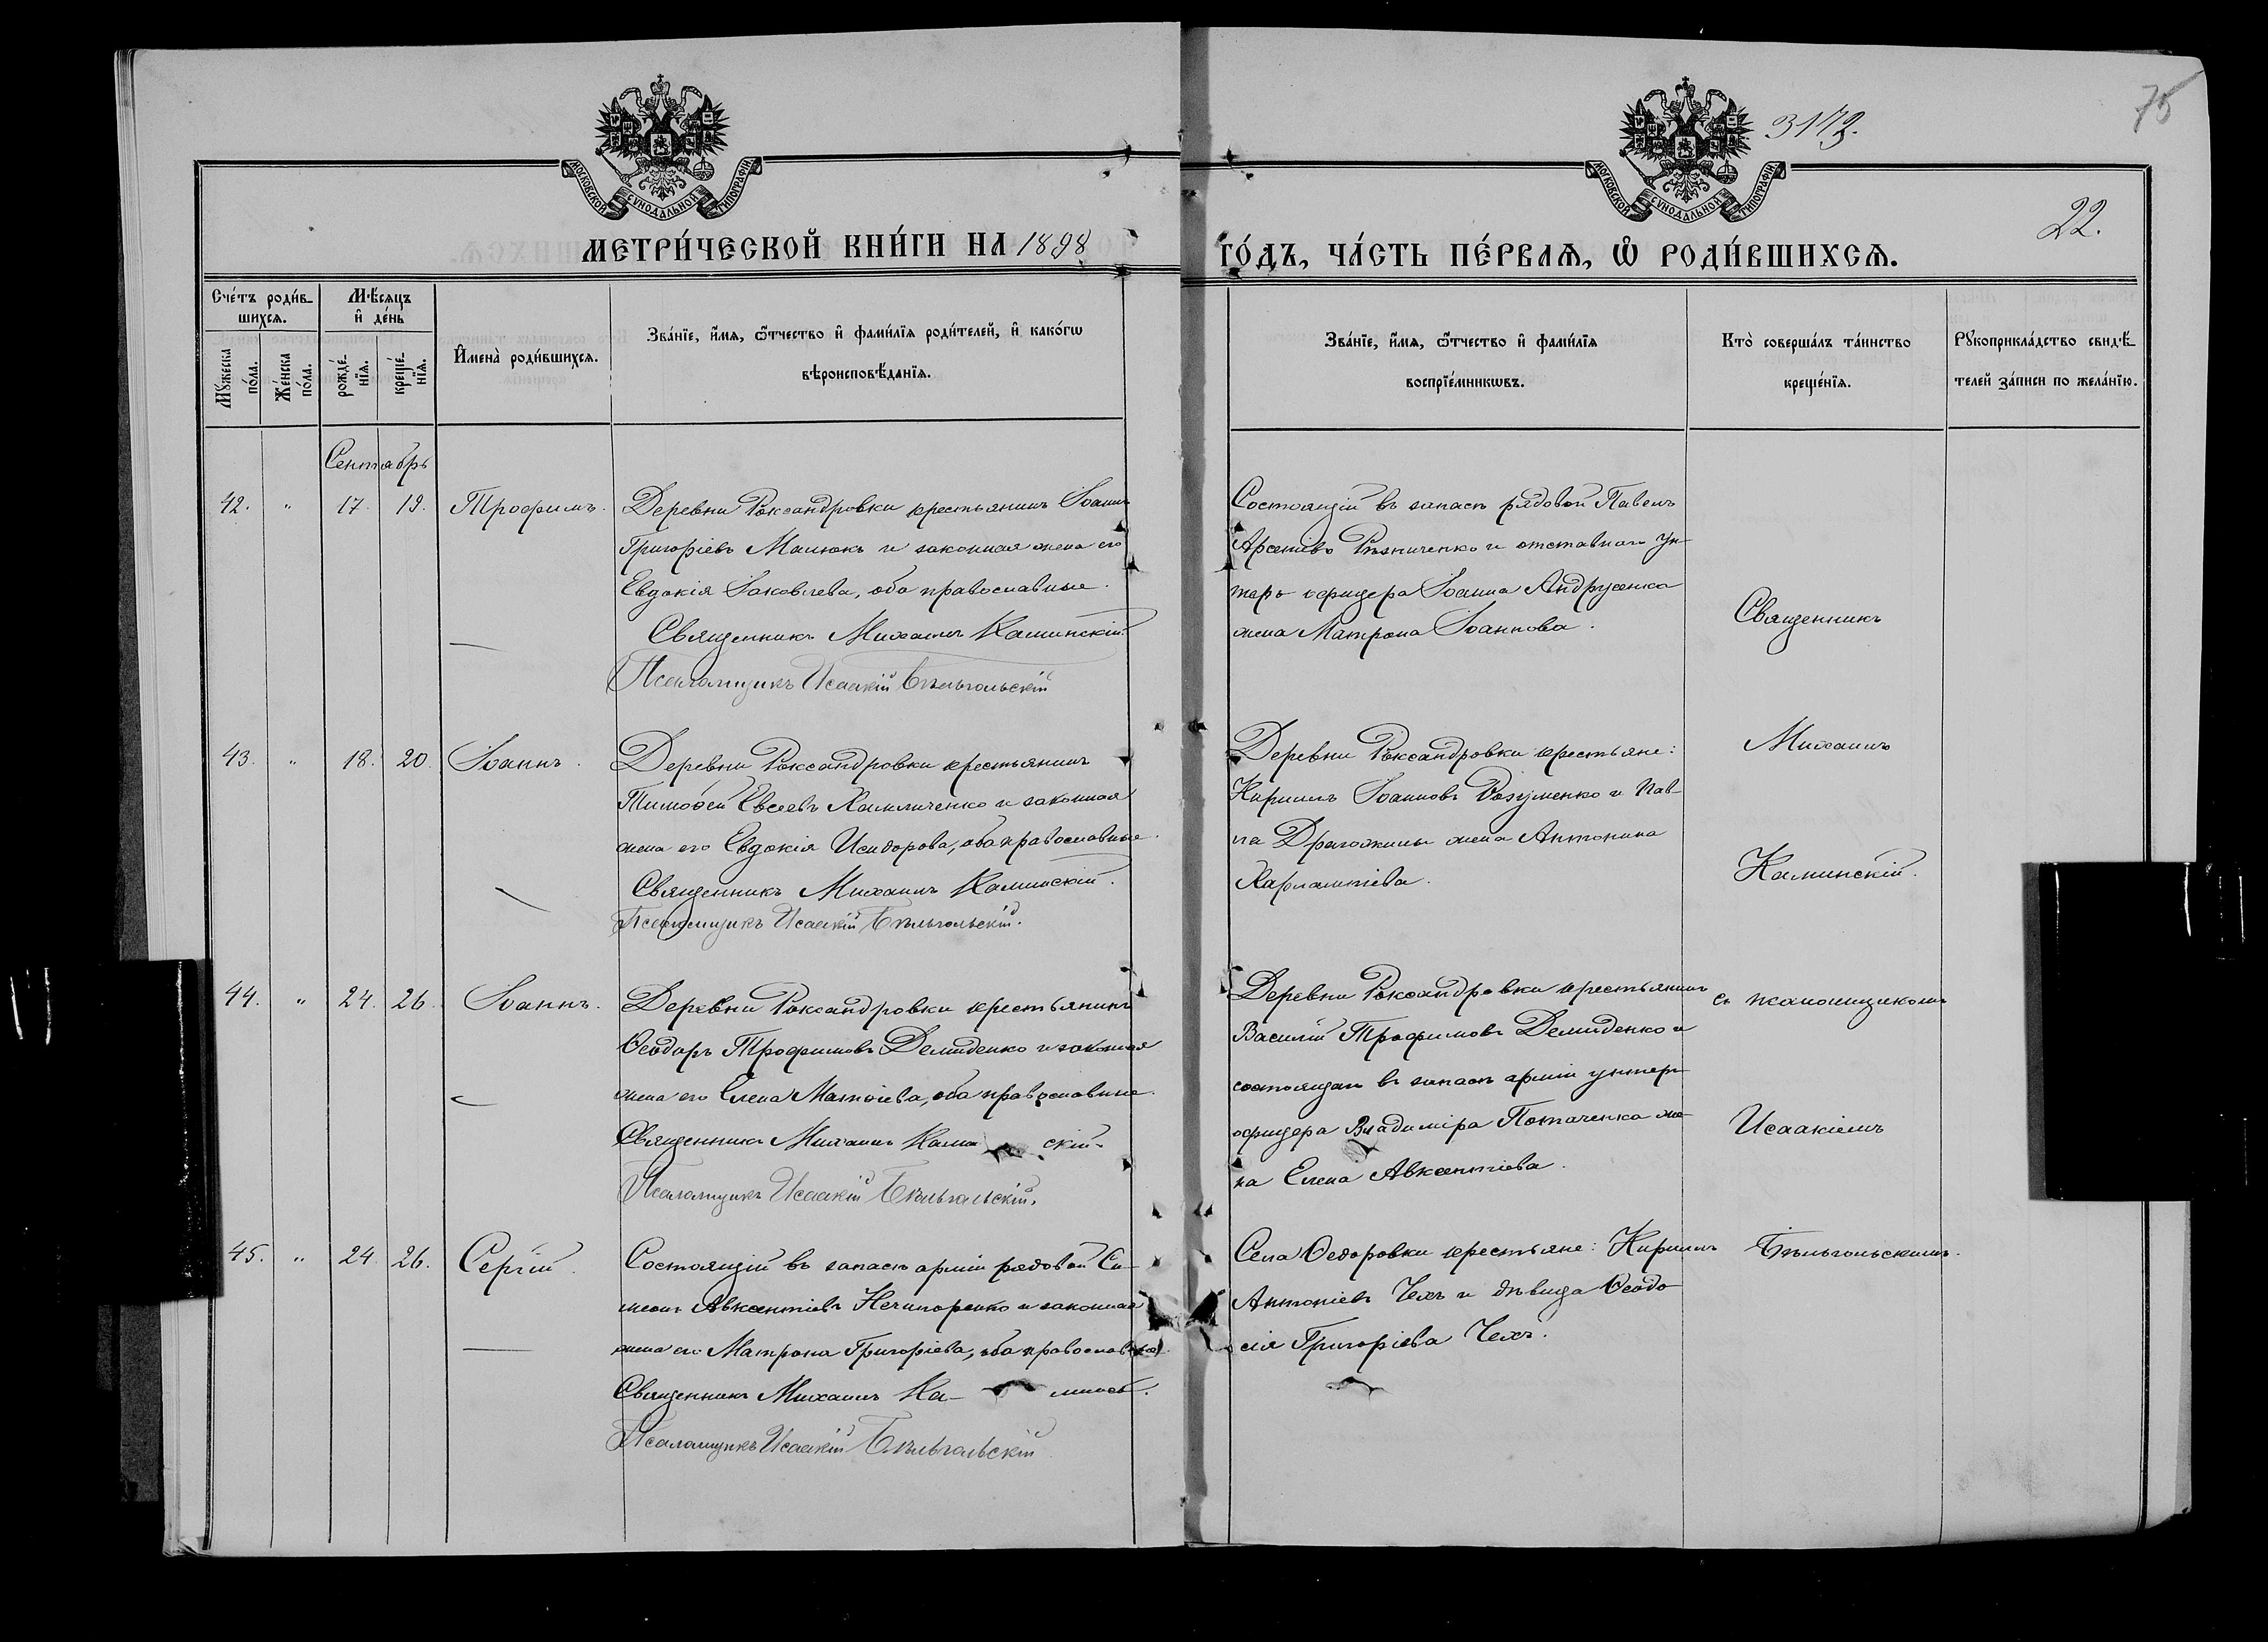 3172.
75
22.
МОСКОВСКОЙ СѴНОДАЛЬНОЙ ТИПОГРАФІИ
МОСКОВСКОЙ СѴНОДАЛЬНОЙ ТИПОГРАФІИ
МЕТРИ́ЧЕСКОЙ КНИ́ГИ НА 1898 ГО́ДЪ, ЧА́СТЬ ПЕ́РВАѦ, Ѡ҆ РОДИ́ВШИХСѦ.
Сче́тъ роди́в-
шихсѧ.
Мꙋжеска
по́ла.
Же́нска
по́ла.
Мѣ́сѧцъ
и҆ де́нь
рожде́-
нїѧ.
креще́-
нїѧ.
И҆мена̀ роди́вшихсѧ.
Зва́нїе, и҆́мѧ, ѻ҆́тчество и҆ фами́лїѧ роди́телей, и҆ како́гѡ
вѣроисповѣ́данїѧ.
Зва́нїе, и҆́мѧ, ѻ҆́тчество и҆ фами́лїѧ
воспрїе́мникѡвъ.
Кто̀ соверша́лъ та́инство
креще́нїѧ.
Рꙋкоприкла́дство свидѣ́-
телей за́писи по жела́нїю.
Сентябрь
42. " 17. 19. Трофимъ.
Деревни Роксандровки крестьянинъ Іоаннъ
Григоріевъ Малюкъ и законная жена его
Евдокія Іаковлева, оба православные.
Священникъ Михаилъ Калинскій
Псаломщикъ Исаакій Бѣльгольскій
Состоящій въ запасѣ рядовой Павелъ
Арсеніевъ Рѣзниченко и отставного ун-
теръ офицера Іоанна Андрусенка
жена Матрона Іоаннова.
43. " 18. 20. Іоаннъ.
Деревни Роксандровки крестьянинъ
Тимоѳей Евсеевъ Хамличенко и законная
жена его Евдокія Исидорова, оба православные.
Священникъ Михаилъ Калинскій.
Псаломщикъ Исаакій Бѣльгольскій.
Деревни Роксандровки крестьяне:
Кириллъ Іоанновъ Розуменко и Пав-
ла Драгожилы жена Антонина
Харлампіева.
44. " 24. 26. Іоаннъ.
Деревни Роксандровки крестьянинъ
Ѳеодоръ Трофимовъ Демиденко и законная
жена его Елена Матѳіева, оба православные.
Священникъ Михаилъ Кали скій
Псаломщикъ Исаакій Бѣльгольскій.
Деревни Роксандровки крестьянинъ
Василій Трофимовъ Демиденко и
состоящаго въ запасѣ арміи унтеръ
офицера Владиміра Потаченка же-
на Елена Авксентіева.
45. " 24. 26. Сергій.
Состоящій въ запасѣ арміи рядовой Си-
меонъ Авксентіевъ Нечипоренко и законная
жена его Матрона Григоріева, оба православные.
Священникъ Михаилъ Ка-
Псаломщикъ Исаакій Бѣльгольскій
Села Ѳедоровки крестьяне: Кириллъ
Антоніевъ Чехъ и дѣвица Ѳеодо
сія Григоріева Чехъ.
Священникъ
Михаилъ
Калинскій.
съ псаломщикомъ
Исаакіемъ
Бѣльгольскимъ.